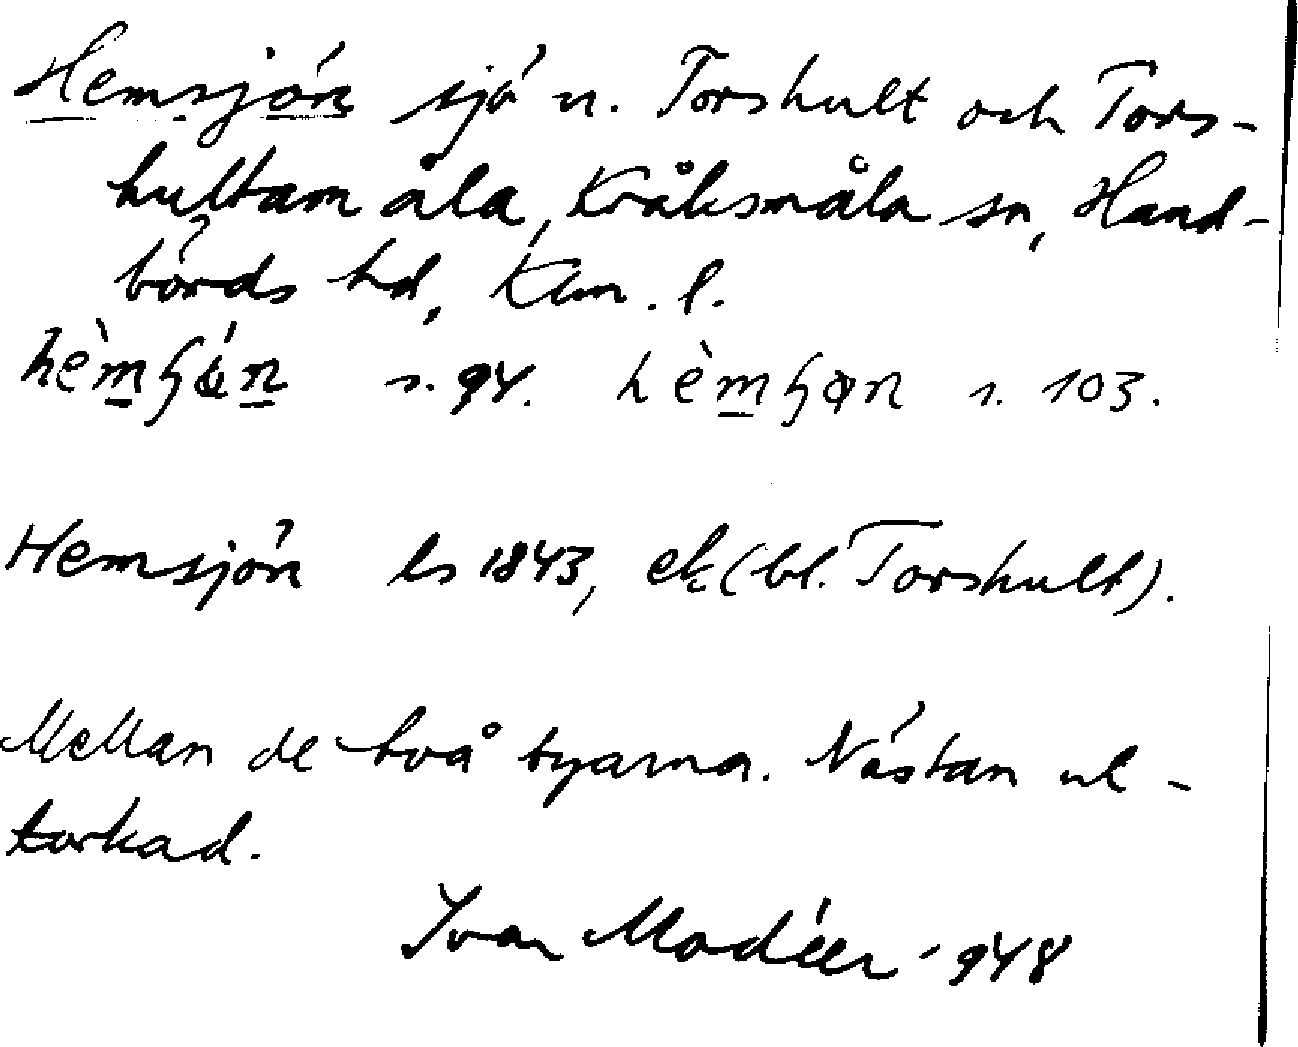 Hemsjön sjö n. Torshult och Tors-
hultamåla, Kråksmåla sn, Hand-
börds hd, Klm. l.
s. 94. s. 103.
Hemsjön ls 1843, ek (bl. Torshult).
Mellan de två byarna. Nästan ut-
torkad.
Ivar Modéer 1948